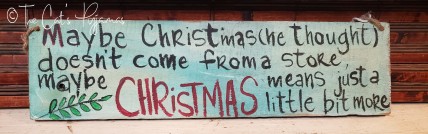 © The Cat's Pajamas
Maybe Christmas (he thought)
doesn't come from a store,
maybe CHRISTMAS means just a
little bit more